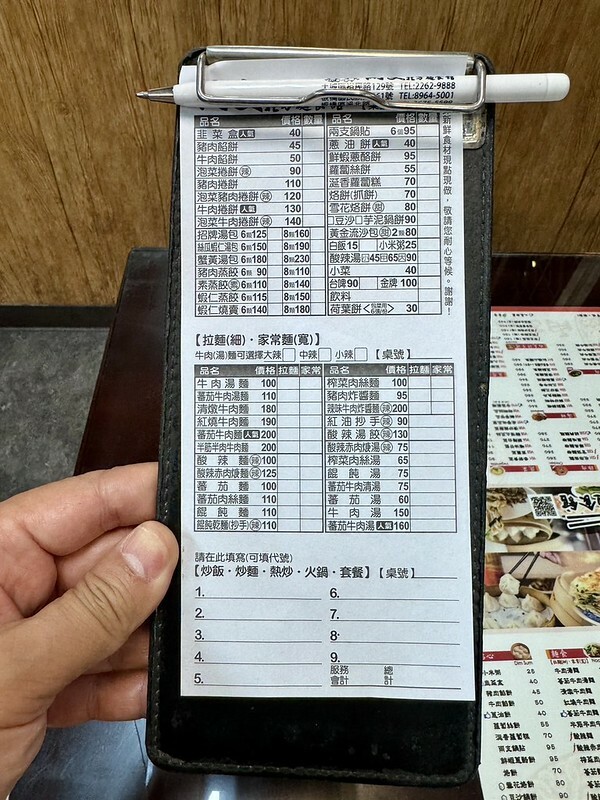 129號 TEL:2262-9888
號 TEL:8964-5001
品名 價格 數量
韭菜盒 人氣 40
豬肉餡餅 45
牛肉餡餅 50
泡菜捲餅(辣) 90
豬肉捲餅 110
泡菜豬肉捲餅(辣) 120
牛肉捲餅 人氣 130
泡菜牛肉捲餅(辣) 140
招牌湯包 6顆125 8顆160
絲瓜蝦仁湯包 6顆150 8顆190
蟹黃湯包 6顆180 8顆230
豬肉蒸餃 6顆 90 8顆110
素蒸餃(素) 6顆110 8顆140
蝦仁蒸餃 6顆115 8顆150
蝦仁燒賣 6顆140 8顆180
品名 價格 數量
兩支鍋貼 6個95
蔥油餅 人氣 40
鮮蝦蔥酪餅 95
蘿蔔絲餅 55
涎香蘿蔔糕 70
烙餅(抓餅) 70
雪花烙餅(甜) 80
□豆沙□芋泥鍋餅90
黃金流沙包(甜) 2顆80
白飯15 小米粥25
酸辣湯 小45 中65 大90
小菜 40
台啤90 金牌 100
飲料
荷葉餅 30
新鮮食材現點現做,敬請您耐心等候。謝謝!
【拉麵(細)・家常麵(寬)】
牛肉(湯)麵可選擇大辣□ 中辣□ 小辣□ 【桌號】
品名 價格 拉麵 家常
牛肉湯麵 100
蕃茄牛肉湯麵 110
清燉牛肉麵 180
紅燒牛肉麵 190
蕃茄牛肉麵 人氣 200
半筋半肉牛肉麵 200
酸辣麵(辣)100
酸辣赤肉焿湯麵(辣)125
蕃茄麵 100
蕃茄肉絲麵 110
餛飩麵 110
餛飩乾麵(抄手)(辣)110
品名 價格 拉麵 家常
榨菜肉絲麵 100
豬肉炸醬麵 95
辣味牛肉炸醬麵(辣)200
紅油抄手(辣) 90
酸辣湯餃(辣)130
酸辣赤肉焿湯(辣) 75
榨菜肉絲湯 65
餛飩湯 75
蕃茄牛肉清湯 75
蕃茄湯 60
牛肉湯 150
蕃茄牛肉湯 人氣 160
請在此填寫(可填代號)
【炒飯・炒麵・熱炒・火鍋・套餐】【桌號】
1. 6.
2. 7.
3. 8.
4. 9.
5. 服務會計 總計